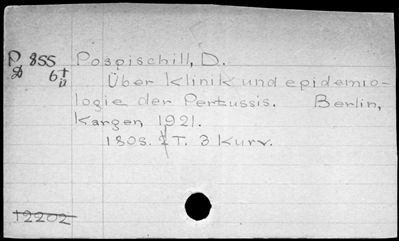 P 855 Pospischill, D.
Über Klinik und epidemio-
logie der Pertussis. Berlin,
Karger, 1921.
180S. T. 3 Kurv.
12202